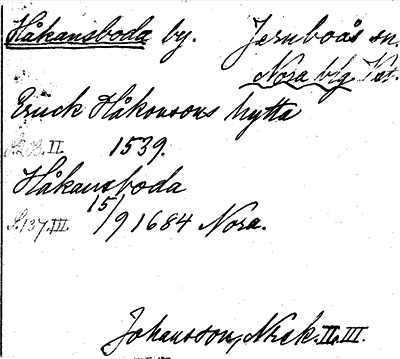 Håkansboda by. Jernboås sn.
Nora blg. Vst.
Erick Håkonsons hytta
S. II. 1539.
Håkansboda
S.137.III. 15/9 1684 Nora.
Johansson, Nbsk. II, III.